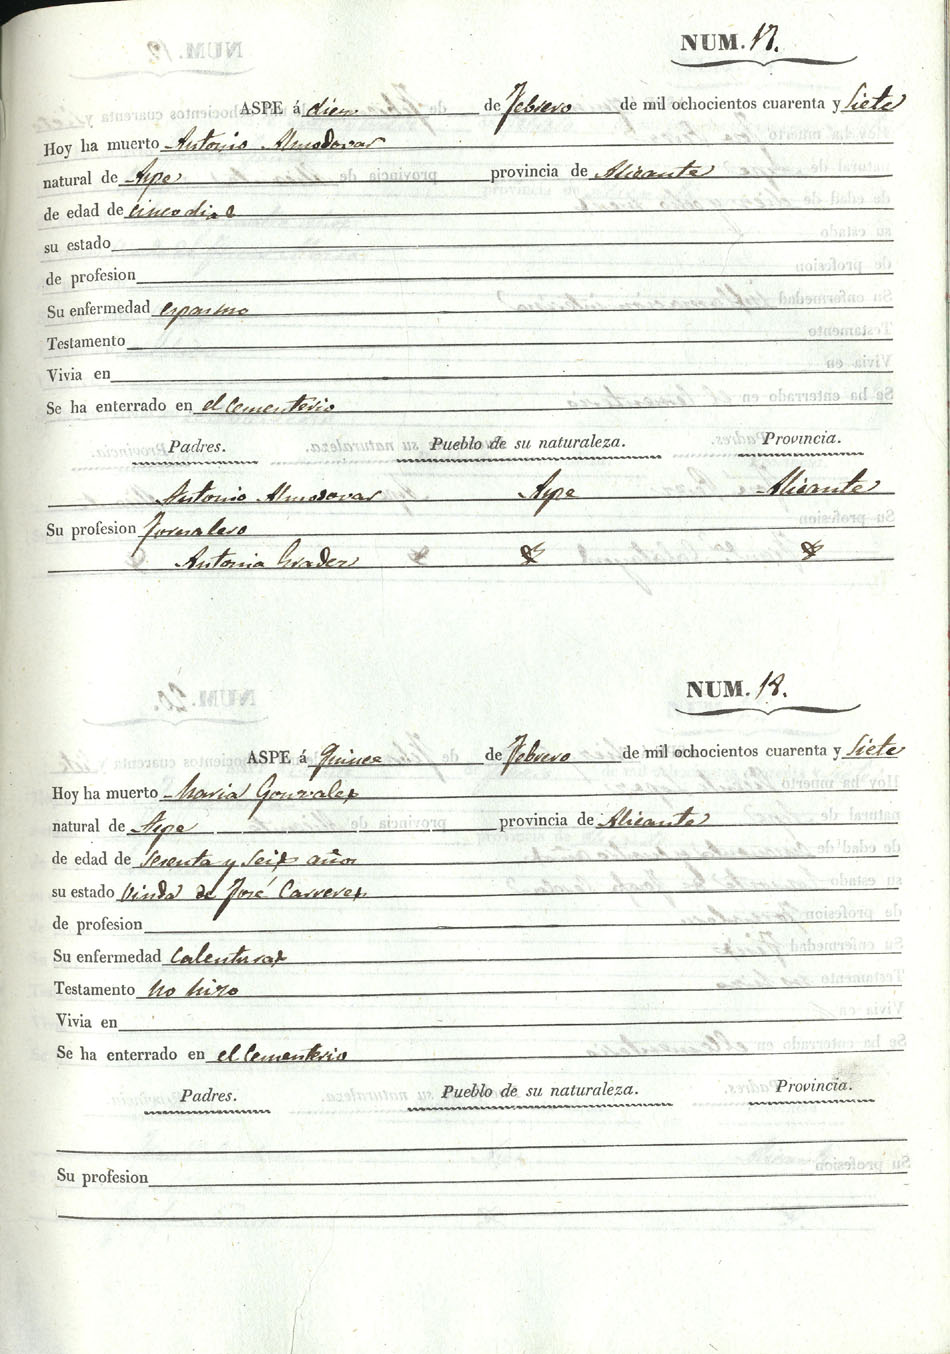 NUM. 17.
ASPE á diez de Febrero de mil ochocientos cuarenta y Siete
Hoy ha muerto Antonio Almodovar
natural de Aspe provincia de Alicante
de edad de cinco dias
su estado
de profesion
Su enfermedad espasmo
Testamento
Vivia en
Se ha enterrado en el Cementerio
Padres. Pueblo de su naturaleza. Provincia.
Antonio Almodovar Aspe Alicante
Su profesion Jornalero
Antonia
NUM. 18.
ASPE á quince de Febrero de mil ochocientos cuarenta y Siete
Hoy ha muerto Maria Gonzalez
natural de Aspe provincia de Alicante
de edad de sesenta y Seis años
su estado Vinda de José Carreres
de profesion
Su enfermedad Calenturas
Testamento No hizo
Vivia en
Se ha enterrado en el Cementerio
Padres. Pueblo de su naturaleza. Provincia.
Su profesion